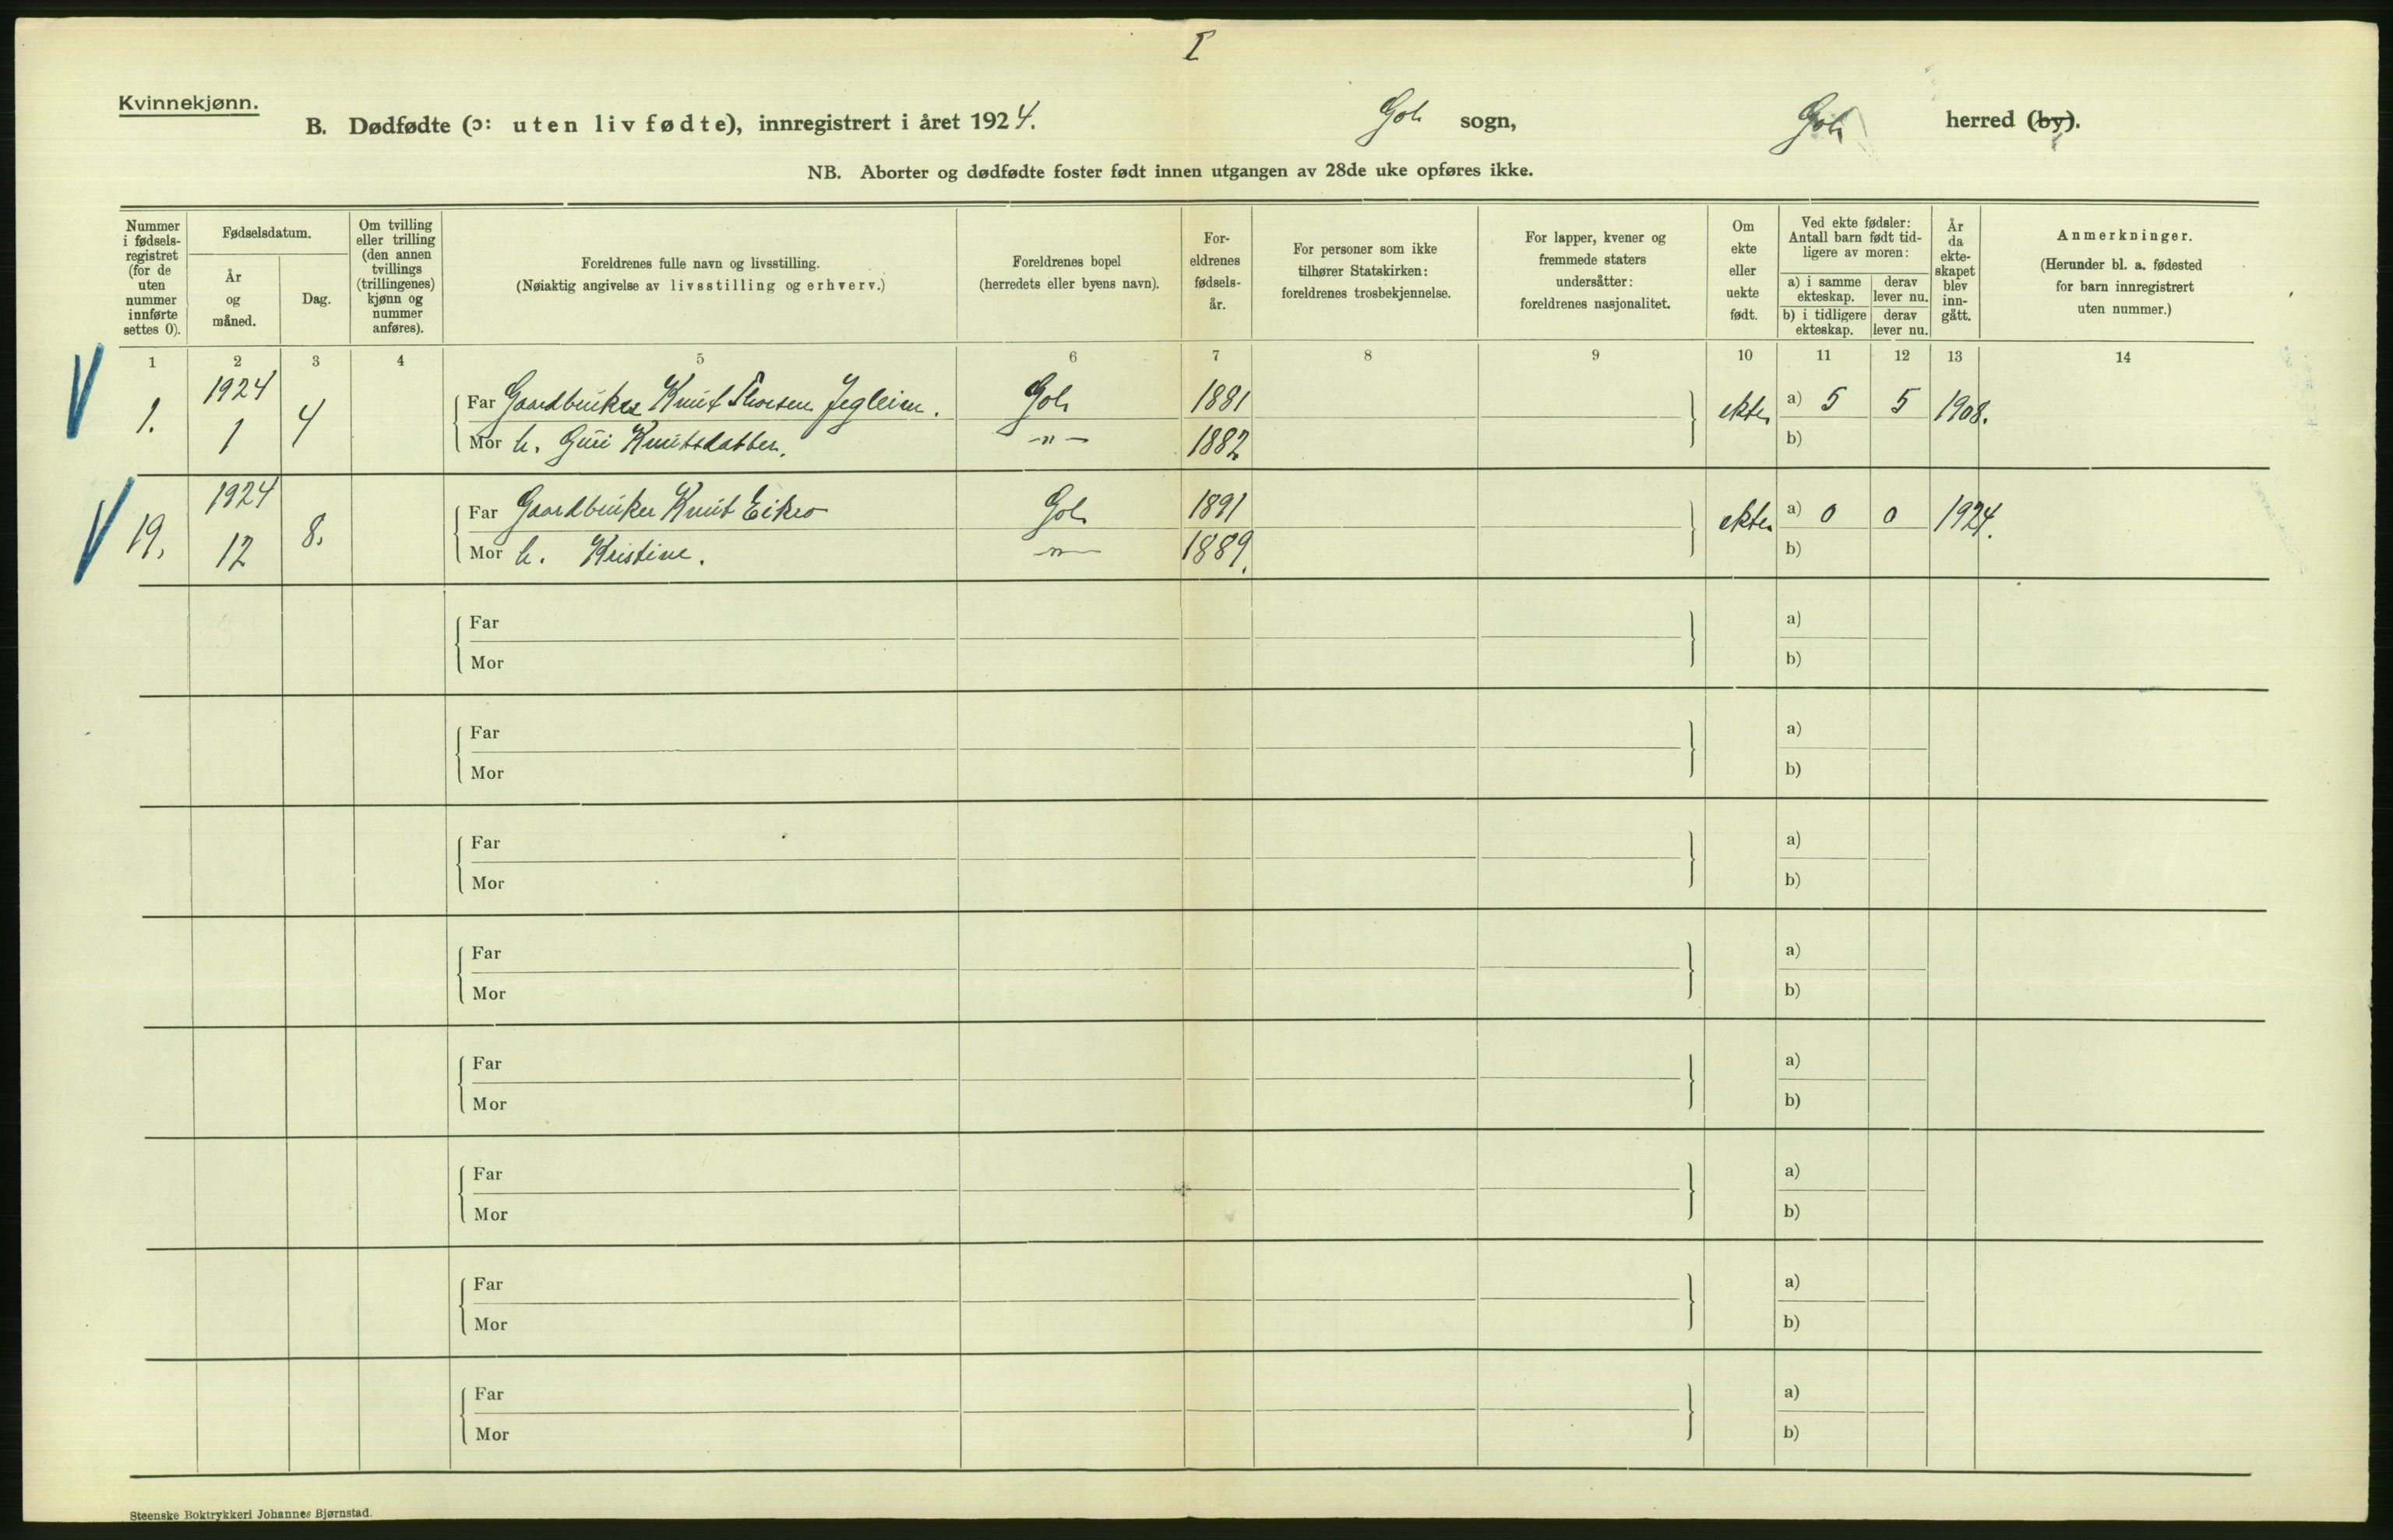 I
Kvinnekjønn.
B. Dødfødte (ɔ: uten liv fødte), innregistrert i året 1924. Gol sogn, Gol herred (by).
NB. Aborter og dødfødte foster født innen utgangen av 28de uke opføres ikke.
Nummer i fødsels- registret (for de uten nummer innførte settes 0).
Fødselsdatum.
År og måned.
Dag.
Om tvilling eller trilling (den annen tvillings (trillingenes) kjønn og nummer anføres).
Foreldrenes fulle navn og livsstilling.
(Nøiaktig angivelse av livsstilling og erhverv.)
Foreldrenes bopel
(herredets eller byens navn).
For- eldrenes fødsels- år.
For personer som ikke tilhører Statskirken: foreldrenes trosbekjennelse.
For lapper, kvener og fremmede staters undersåtter: foreldrenes nasjonalitet.
Om ekte eller uekte født.
Ved ekte fødsler: Antall barn født tid- ligere av moren:
a) i samme ekteskap.
derav lever nu.
b) i tidligere ekteskap.
derav lever nu.
År da ekte- skapet blev inn- gått.
Anmerkninger.
(Herunder bl. a. fødested for barn innregistrert uten nummer.)
1 2 3 4 5 6 7 8 9 10 11 12 13 14
1. 1924 1 4 Far Gaardbruker Knut Thorsen Jegleim. Gol 1881 ekte a) 5 5 1908.
Mor h. Guri Knutsdatter. -"- 1882 b)
19. 1924 12 8. Far Gaardbruker Knut Eikro Gol 1891 ekte a) 0 0 1924.
Mor h. Kristine. -"- 1889. b)
Far a)
Mor b)
Far a)
Mor b)
Far a)
Mor b)
Far a)
Mor b)
Far a)
Mor b)
Far a)
Mor b)
Far a)
Mor b)
Far a)
Mor b)
Steenske Boktrykkeri Johannes Bjørnstad.